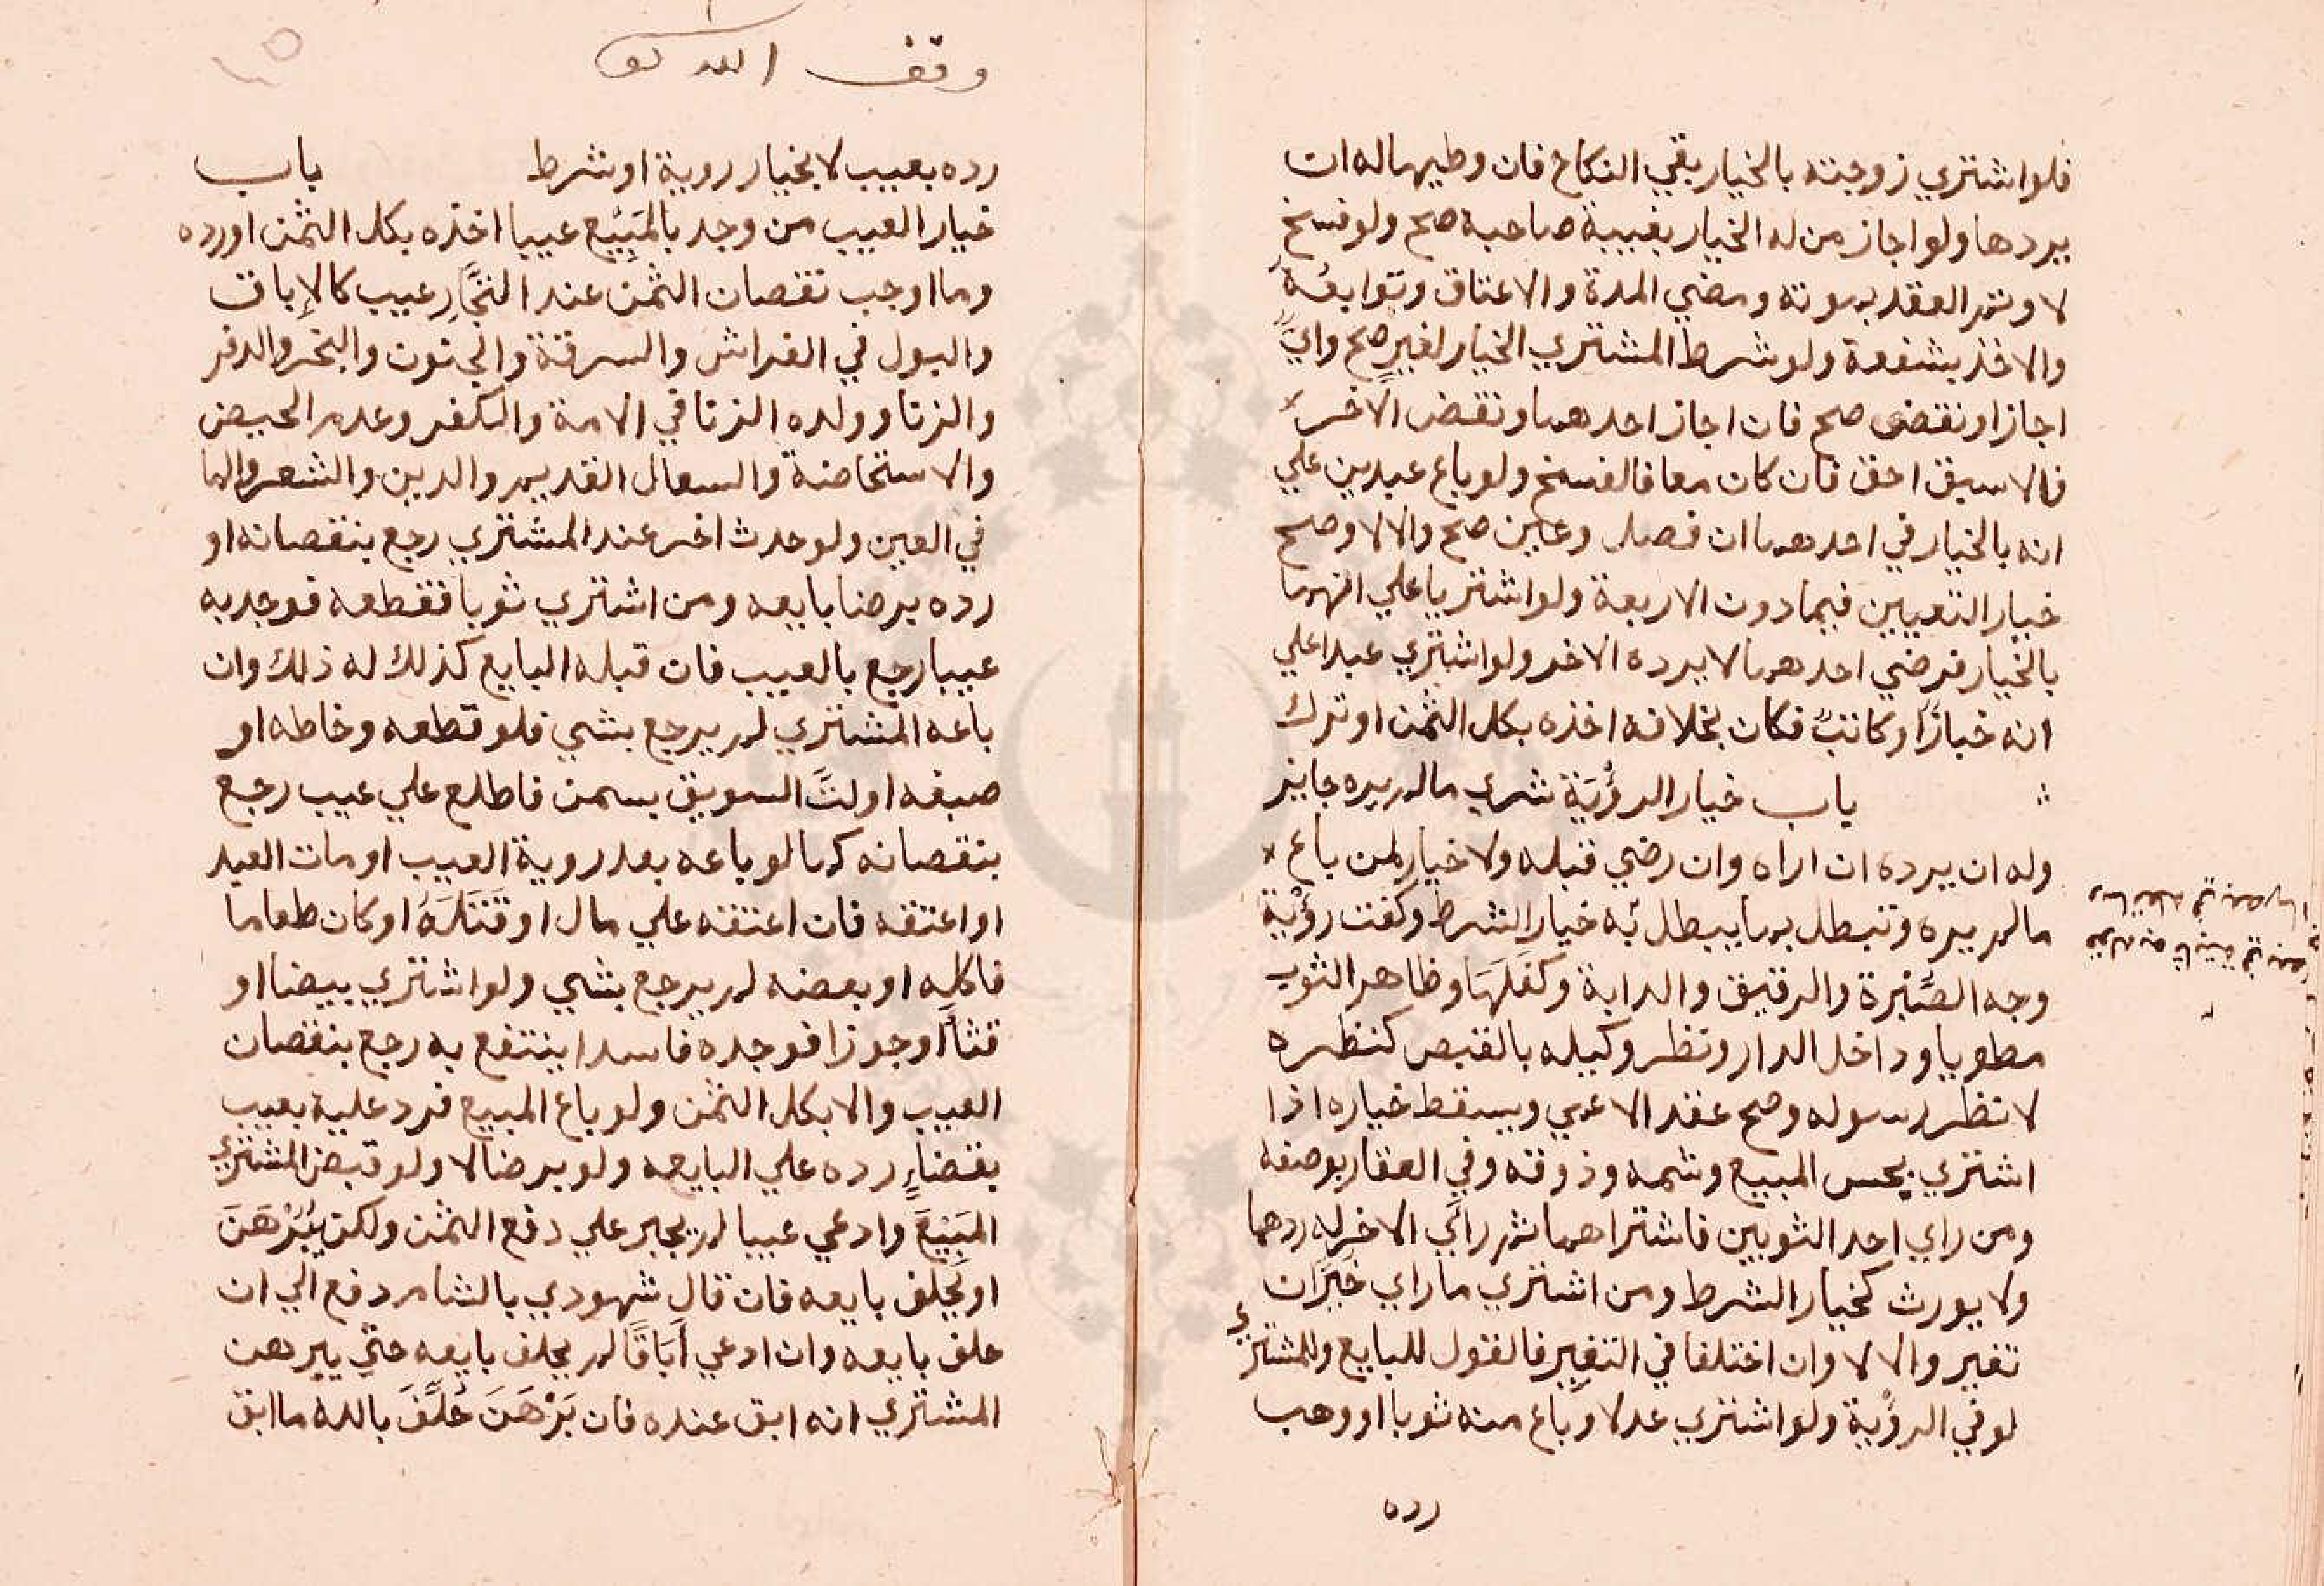 فلو اشتري زوجته بالخيار بقي النكاح فان وطيها له ان
يردها ولو اجاز من له الخيار بغيبة صاحبه صح ولو فسخ
لا وتم العقد بموته ومضي المدة والاعتاق وتوابعه
والاخذ بشفعة ولو شرط المشتري الخيار لغيره صح واي
اجاز او نقض صح فان اجاز احدهما ونقض الاخر
فالاسبق احق فان كان معا فالفسخ ولو باع عبدين علي
انه بالخيار في احدهما ان فصل وعين صح والا لا وصح
خيار التعيين فيما دون الاربعة ولو اشتريا علي انهما
بالخيار فرضي احدهما لا يرده الاخر ولو اشتري عبدا علي
انه خبازا او كاتب فكان بخلافه اخذه بكل الثمن او ترك
باب خيار الرؤية شري ما لم يره جايز
وله ان يرده ان اراه وان رضي قبله ولا خيار لمن باع
ما لم يره وتبطل بما يبطل به خيار الشرط وكفت رؤية
وجه الصبرة والرقيق والدابة وكفلها وظاهر الثوب
مطويا وداخل الدار ونظر وكيله بالقبض كنظره
لا نظر رسوله وصح عقد الاعمي ويسقط خياره اذا
اشتري بجس المبيع وشمه وذوقه وفي العقار بوصفه
ومن راي احد الثوبين فاشتراهما ثم راي الاخر له ردهما
ولا يورث كخيار الشرط ومن اشتري ما راي خير ان
تغير والا لا وان اختلفا في التغير فالقول للبايع وللمشتري
لو في الرؤية ولو اشتري عدلا وباع منه ثوبا او وهب
رده
وقف الله
رده بعيب لا بخيار روية او شرط باب
خيار العيب من وجد بالمبيع عيبا اخذه بكل الثمن او رده
وما اوجب نقصان الثمن عند التجار عيب كالاباق
والبول في الفراش والسرقة والجنون والبخر والدفر
والزنا وولده الزنا في الامة والكفر وعدم الحيض
والاستحاضة والسعال القديم والدين والشعر والما
في العين ولو حدث اخر عند المشتري رجع بنقصانه او
رده برضا بايعه ومن اشتري ثوبا فقطعه فوجد به
عيبا رجع بالعيب فان قبله البايع كذلك له ذلك وان
باعه المشتري لم يرجع بشي فلو قطعه وخاطه او
صبغه او لت السويق بسمن فاطلع علي عيب رجع
بنقصانه كما لو باعه بعد روية العيب او مات العبد
او اعتقه فان اعتقه علي مال او قتله او كان طعاما
فاكله او بعضه لم يرجع بشي ولو اشتري بيضا او
قثاأ او جوزا فوجده فاسدا ينتفع به رجع بنقصان
العيب والا بكل الثمن ولو باع المبيع فرد علية بعيب
بقضاء رده علي البايعه ولو برضا لا ولو قبض المشتري
المبيع وادعي عيبا لم يجبر علي دفع الثمن ولكن يبرهن
او يحلف بايعه فان قال شهودي بالشام دفع الي ان
حلف بايعه وان ادعي اباقا لم يحلف بايعه حتي يبرهن
المشتري انه ابق عنده فان برهن حلف بالله ما ابق